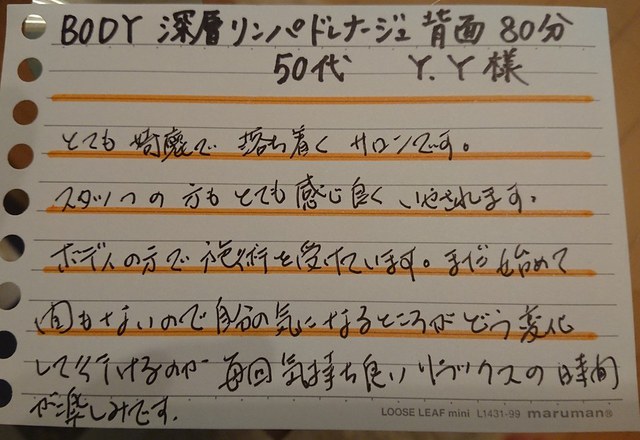 BODY 深層リンパドレナージュ 背面 80分
50代 Y.Y様
とても綺麗で落ち着くサロンです。
スタッフの方もとても感じ良くいやされます。
ボディの方で施術を受けています。まだ始めて
間もないので自分の気になるところがどう変化
して行けるのか毎回気持ち良いリラックスの時間
が楽しみです。
LOOSE LEAF mini L1431-99 maruman®